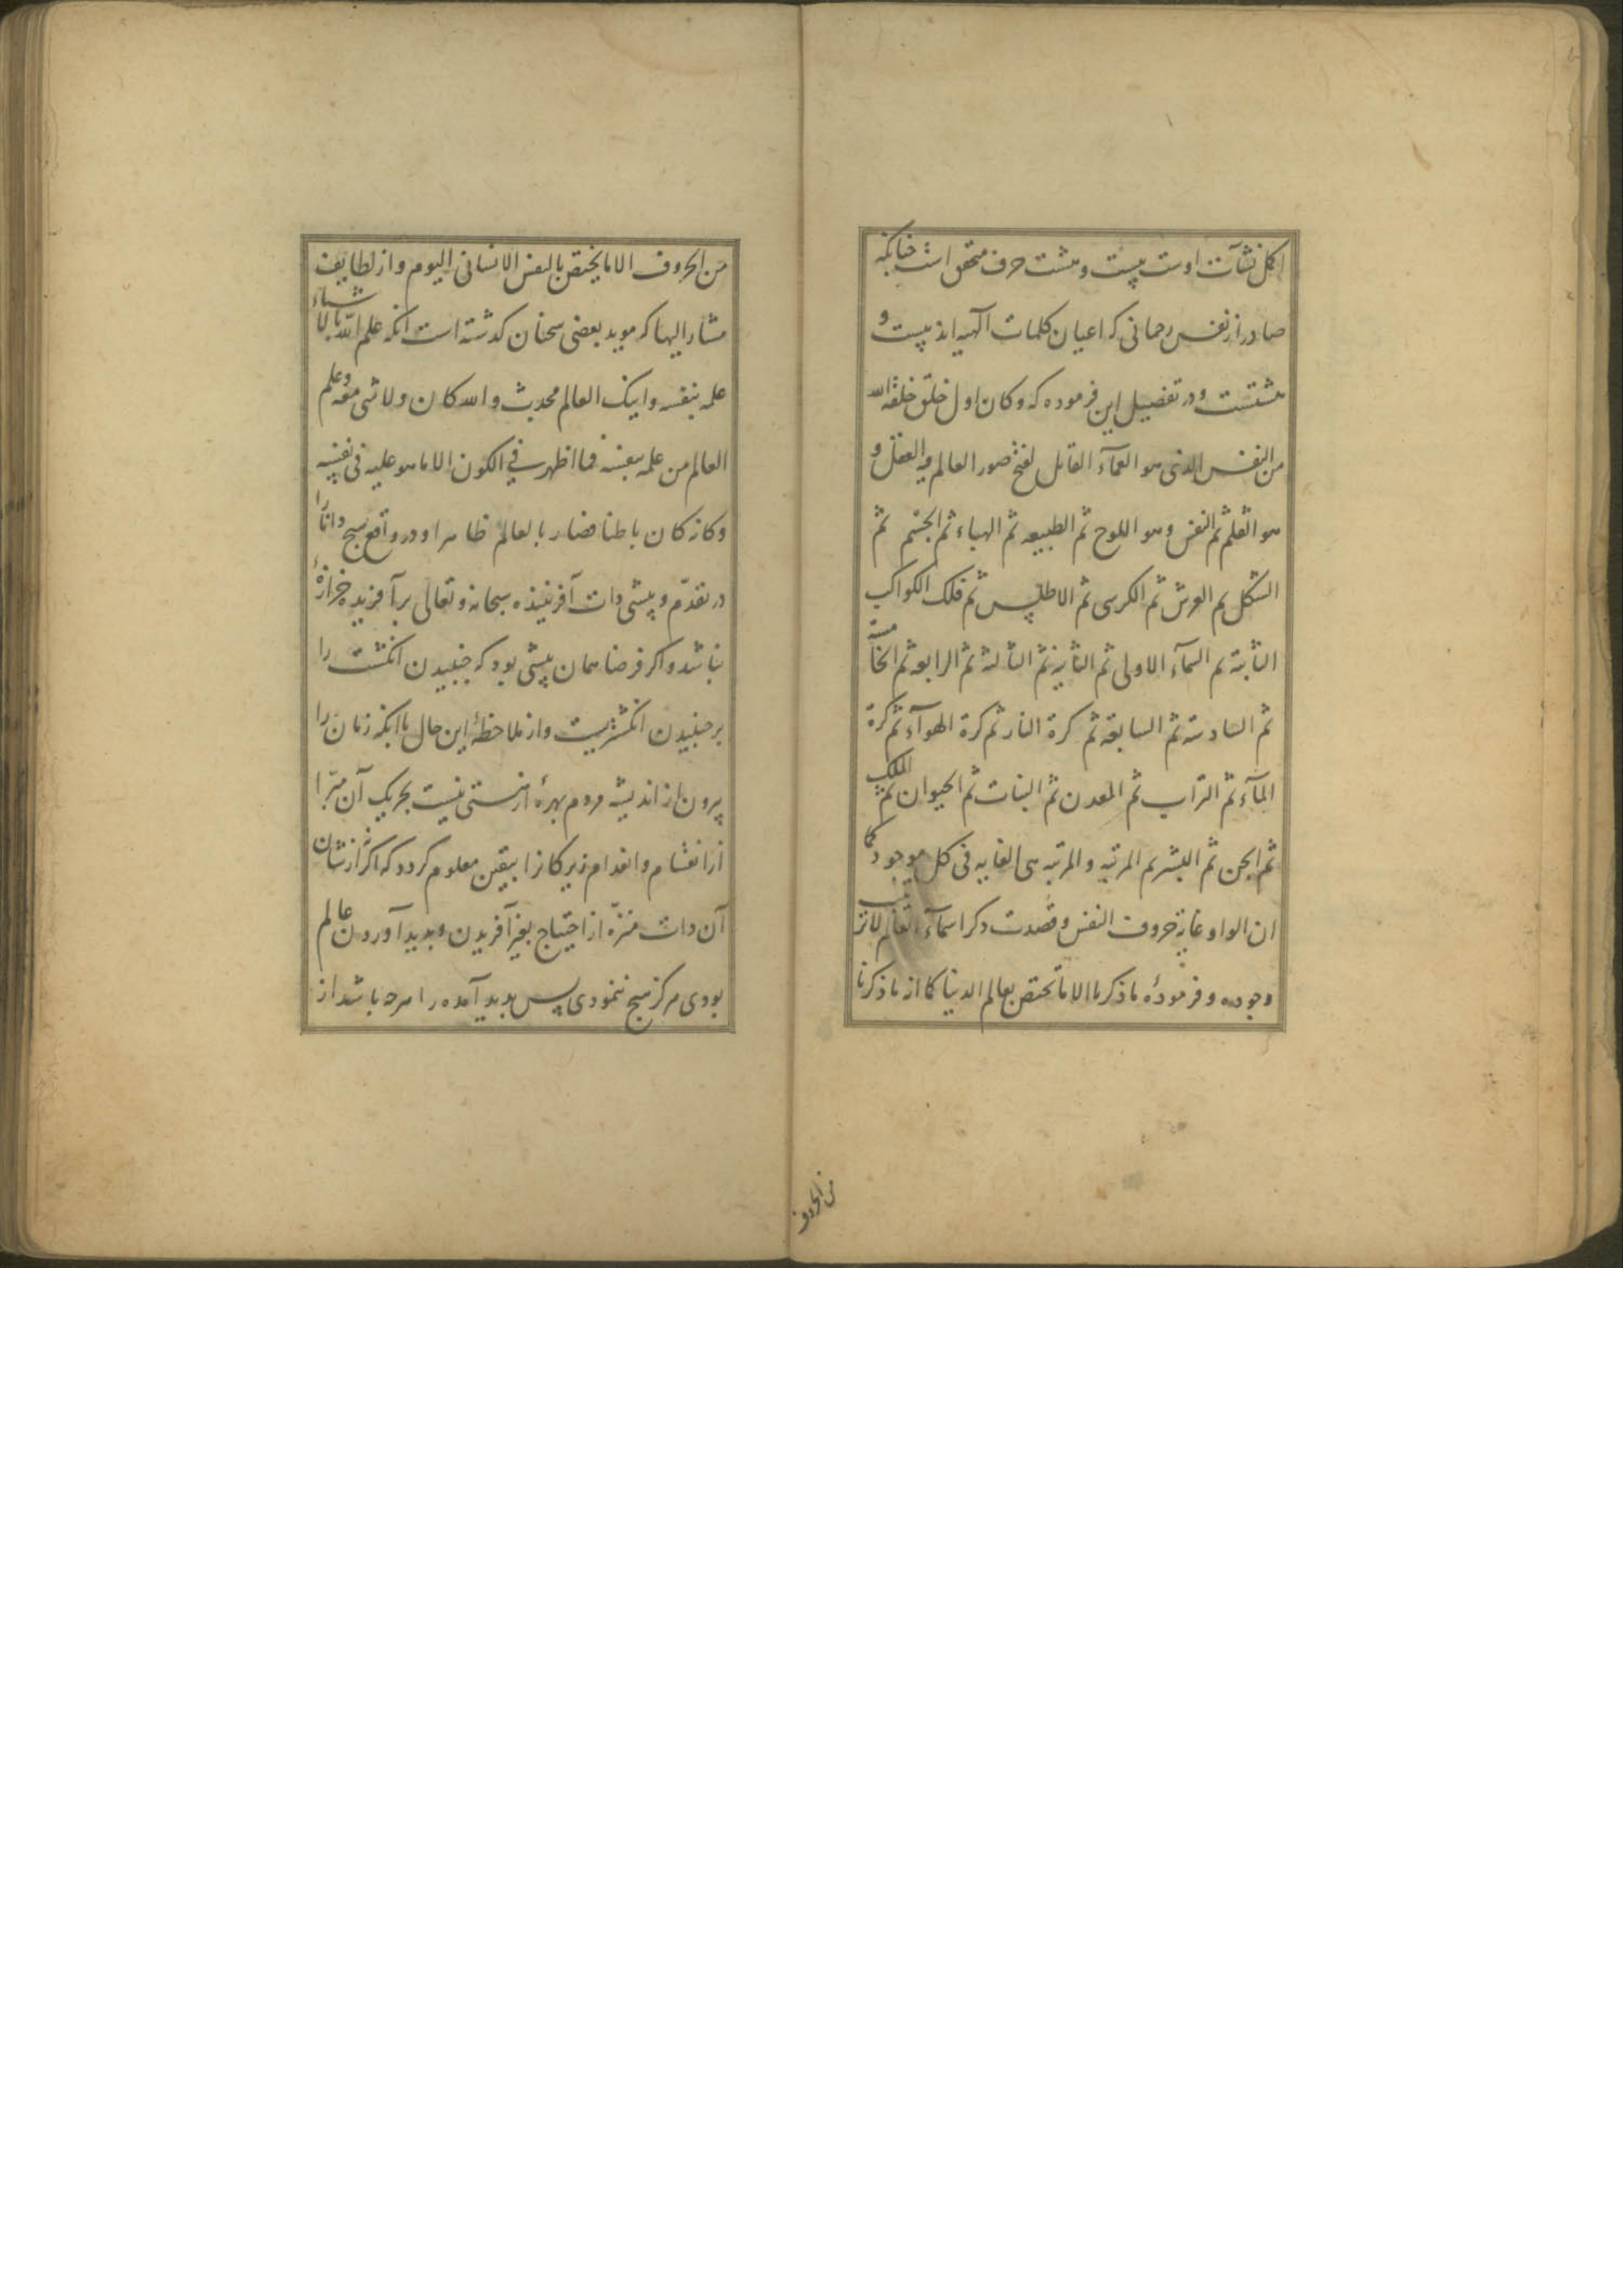 اکمل نشآت اوست بیست و هشت حرف متحقق است چنانکه
صادر از نفس رحمانی که اعیان کلمات آلهیه اند بیست و
هشتست و در تفصیل این فرموده که وکان اول خلق خلقه الله
من النفس الذی هو العمآء القابل لفتح صور العالم فیه العقل و
هو القلم ثم النفس وهو اللوح ثم الطبیعه ثم الهباء ثم الجسم ثم
الشکل ثم العرش ثم الکرسی ثم الاطلس ثم فلک الکواکب
الثابتة ثم السمآء الاولی ثم الثانیة ثم الثالثة ثم الرابعه ثم الخامسة
ثم السادسة ثم السابعة ثم کرة النار ثم کرة الهوآء ثم کرة
المآء ثم التراب ثم المعدن ثم النبات ثم الحیوان ثم الملک
ثم الجن ثم البشر ثم المرتبه والمرتبه هی الغایه فی کل موجود کما
ان الواو غایة حروف النفس وقصدت ذکر اسمآء العالم لا ترتیب
وجوده و فرموده ما ذکرنا الا ما یختص بعالم الدنیا کما انه ما ذکرنا
من الحروف
من الحروف الا ما یختص بالنفس الانسانی الیوم و از لطایف
مشار الیها که موید بعضی سخنان کذشته است انکه علم الله بالاشیاء
علمه بنفسه وایک العالم محدث والله کان ولا شی معه وعلم
العالم من علمه بنفسه فما اظهر فی الکون الا ما هو علیه فی نفسه
وکانه کان باطنا فصار بالعالم ظاهرا و در واقع هیچ دانا را
در تقدّم و پیشی ذات آفریننده سبحانه و تعالی بر آفریده خزازهٔ
نباشد و اکر فرضا همان پیشی بود که جنبیدن انکشت را
بر جنبیدن انکشتریست و از ملاحظهٔ این حال با انکه زمان را
بیرون از اندیشه مردم بهرهٔ از هستی نیست بحریک آن مبرّا
از انقسام و انعدام زیرکانرا بیقین معلوم کردد که اکر از نشان
آن ذات منزّه از احتیاج بغیر آفریدن و پدید آوردن عالم
بودی هرکز هیچ ننمودی پس پدید آمده را هرچه باشد از